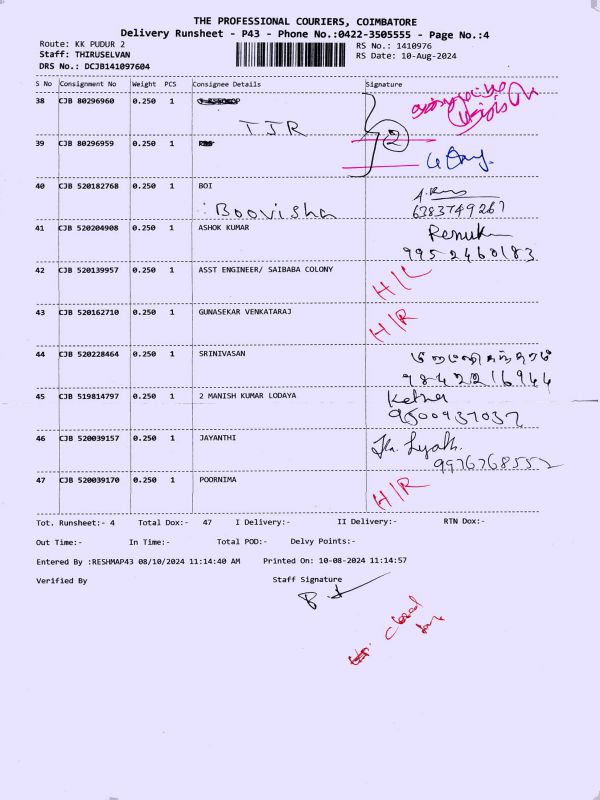 THE PROFESSIONAL COURIERS, COIMBATORE
Delivery Runsheet - P43 - Phone No.:0422-3505555 - Page No.:4
Route: KK PUDUR 2
RS No.: 1410976
Staff: THIRUSELVAN
RS Date: 10-Aug-2024
DRS No.: DCJB141097604
S No Consignment No Weight PCS Consignee Details Signature
38 CJB 80296960 0.250 1
TJR
2
39 CJB 80296959 0.250 1
40 CJB 520182768 0.250 1 BOI
Boovisha 6383749267
41 CJB 520204908 0.250 1 ASHOK KUMAR Renuk
9952460183
42 CJB 520139957 0.250 1 ASST ENGINEER/ SAIBABA COLONY
H/L
43 CJB 520162710 0.250 1 GUNASEKAR VENKATARAJ
H/R
44 CJB 520228464 0.250 1 SRINIVASAN
9842216944
45 CJB 519814797 0.250 1 2 MANISH KUMAR LODAYA Ketna
9500937037
46 CJB 520039157 0.250 1 JAYANTHI
9976768552
47 CJB 520039170 0.250 1 POORNIMA
H/R
Tot. Runsheet:- 4 Total Dox:- 47 I Delivery:- II Delivery:- RTN Dox:-
Out Time:- In Time:- Total POD:- Delvy Points:-
Entered By :RESHMAP43 08/10/2024 11:14:40 AM Printed On: 10-08-2024 11:14:57
Verified By Staff Signature
closed